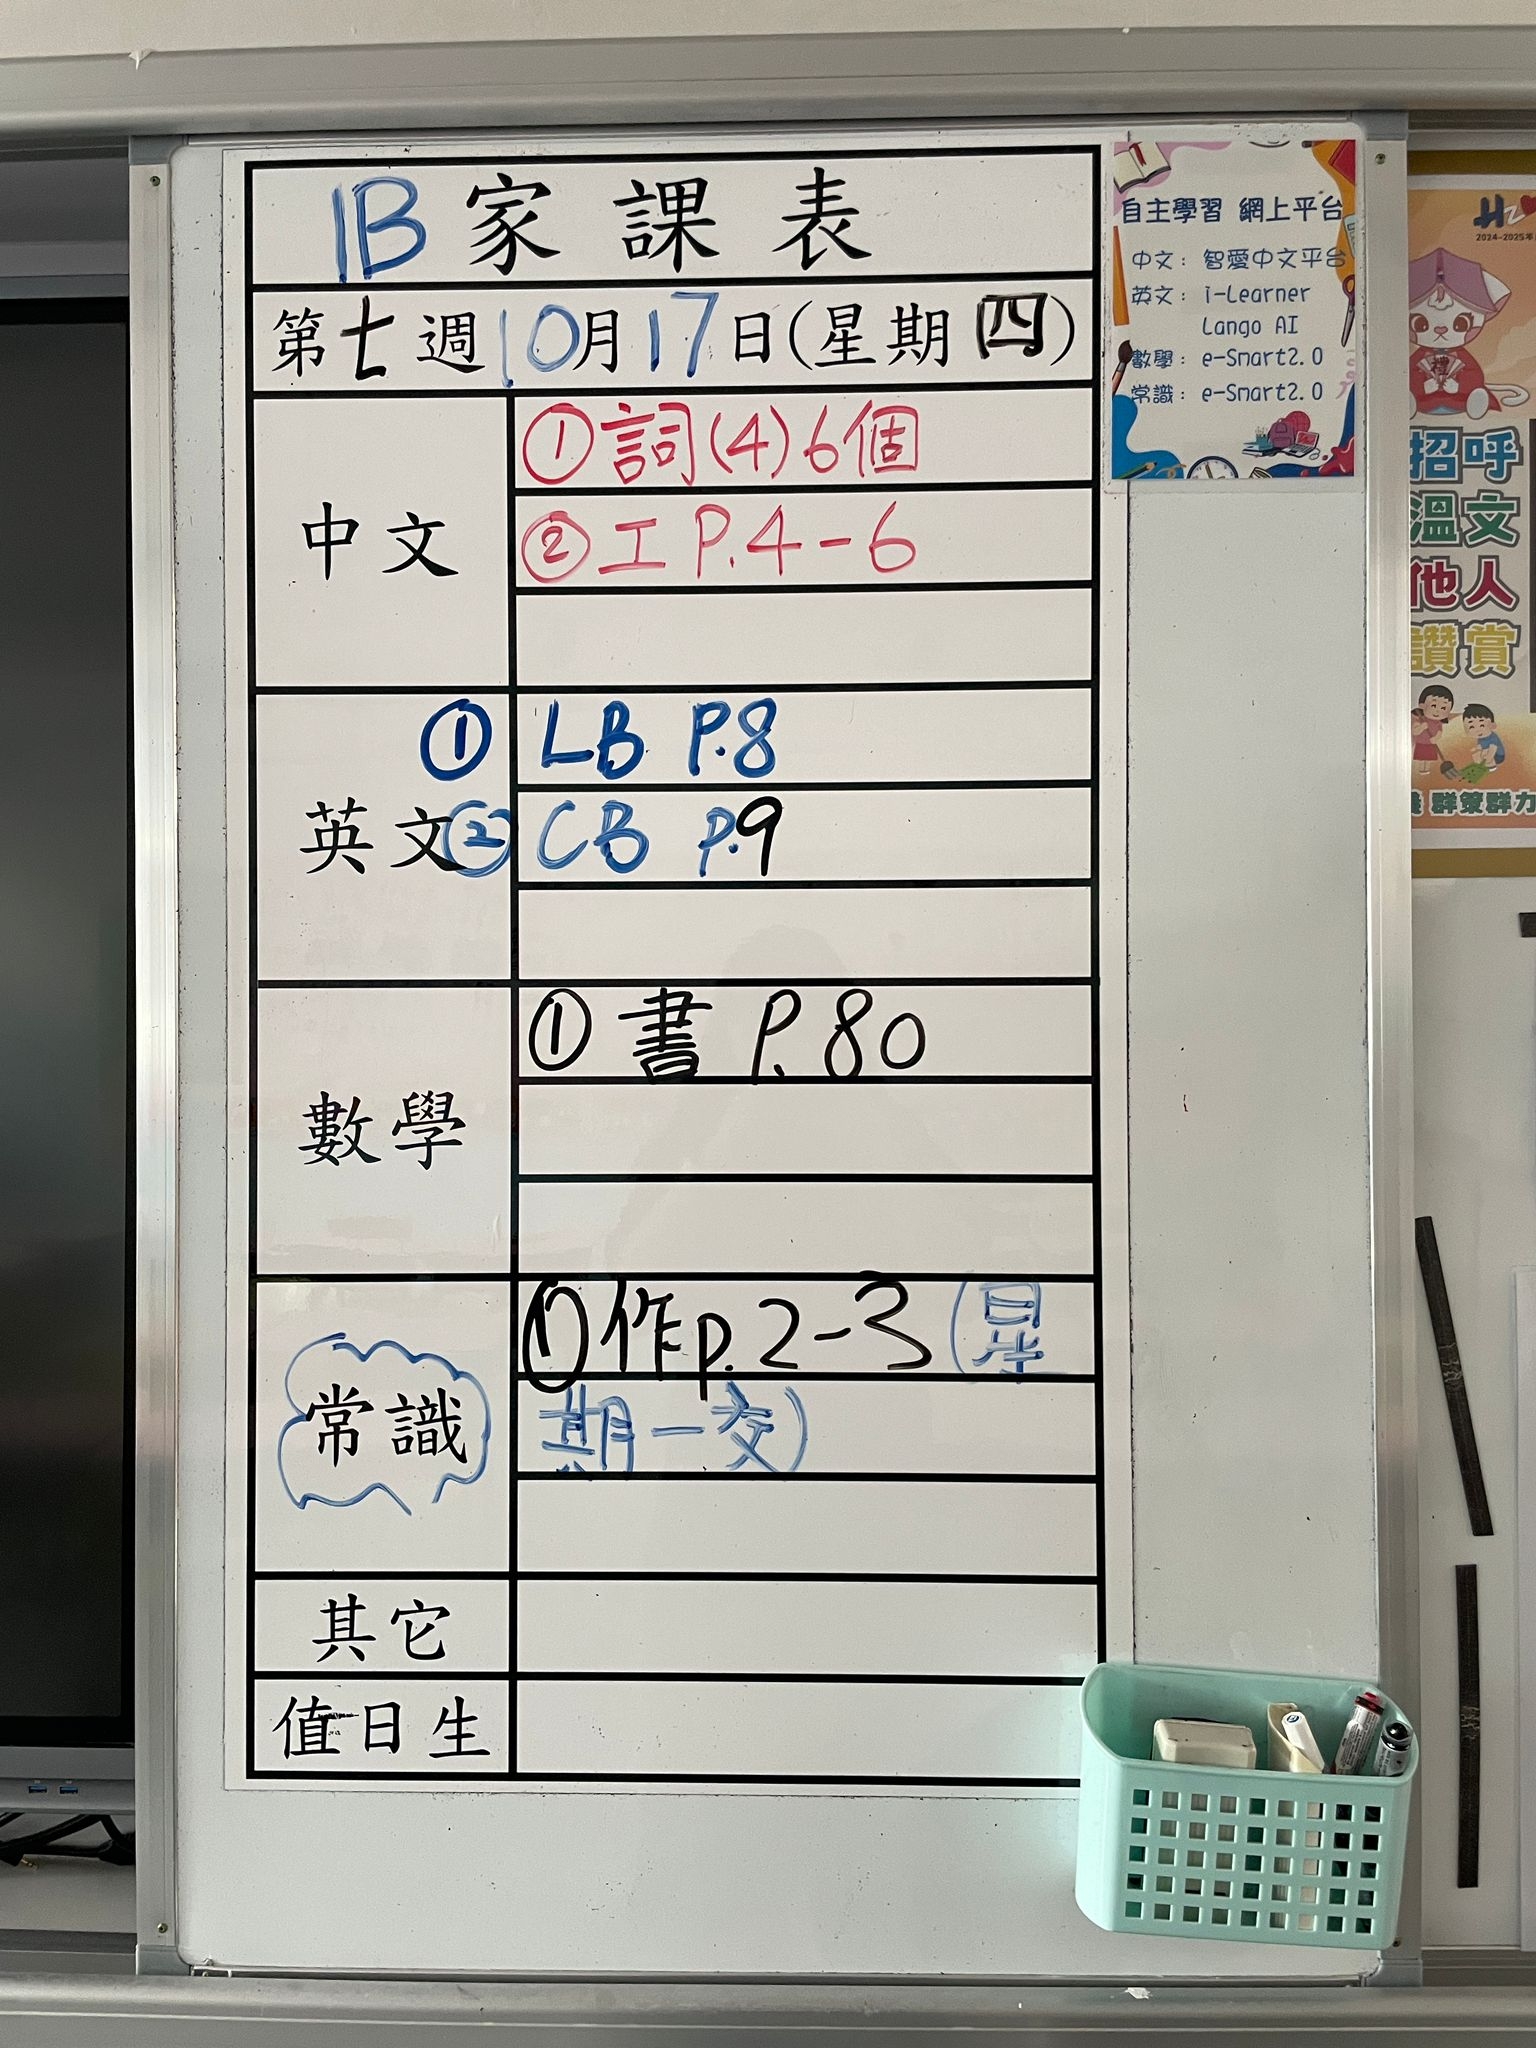 1B 家課表
第七週10月17日(星期四)
中文
① 詞(4)6個
② 工 P.4-6
英文
① LB P.8
② CB P.9
數學
① 書 P.80
常識
① 作p.2-3 (星
期一交)
其它
值日生
自主學習 網上平台
中文: 智愛中文平台
英文: i-Learner
Lango AI
數學: e-Smart2.0
常識: e-Smart2.0
2024-2025年
招呼
溫文
他人
讚賞
群策群力